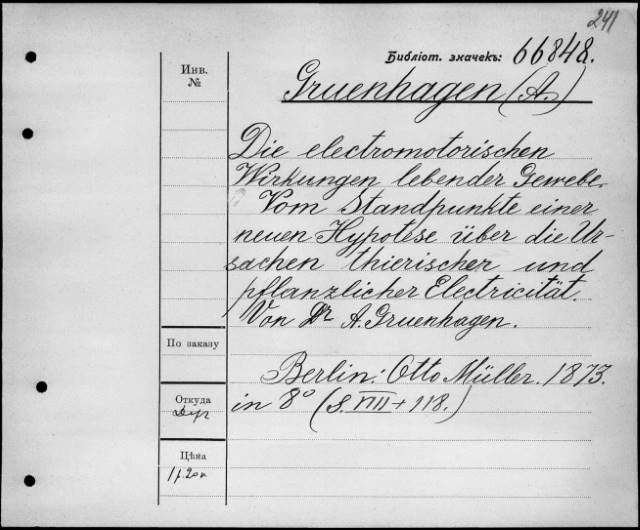 241
Библіот. значекъ: 66848.
Инв.
№
Gruenhagen (A.)
Die electromotorischen
Wirkungen lebender Gewebe.
Vom Standpunkte einer
neuen Hypotese über die Ur-
sachen thierischer und
pflanzlicher Electricität.
Von Dr A. Gruenhagen.
По заказу
Berlin: Otto Müller. 1873.
Откуда
in 8° (S. VIII + 118.)
Цѣна
1 р. 20 к